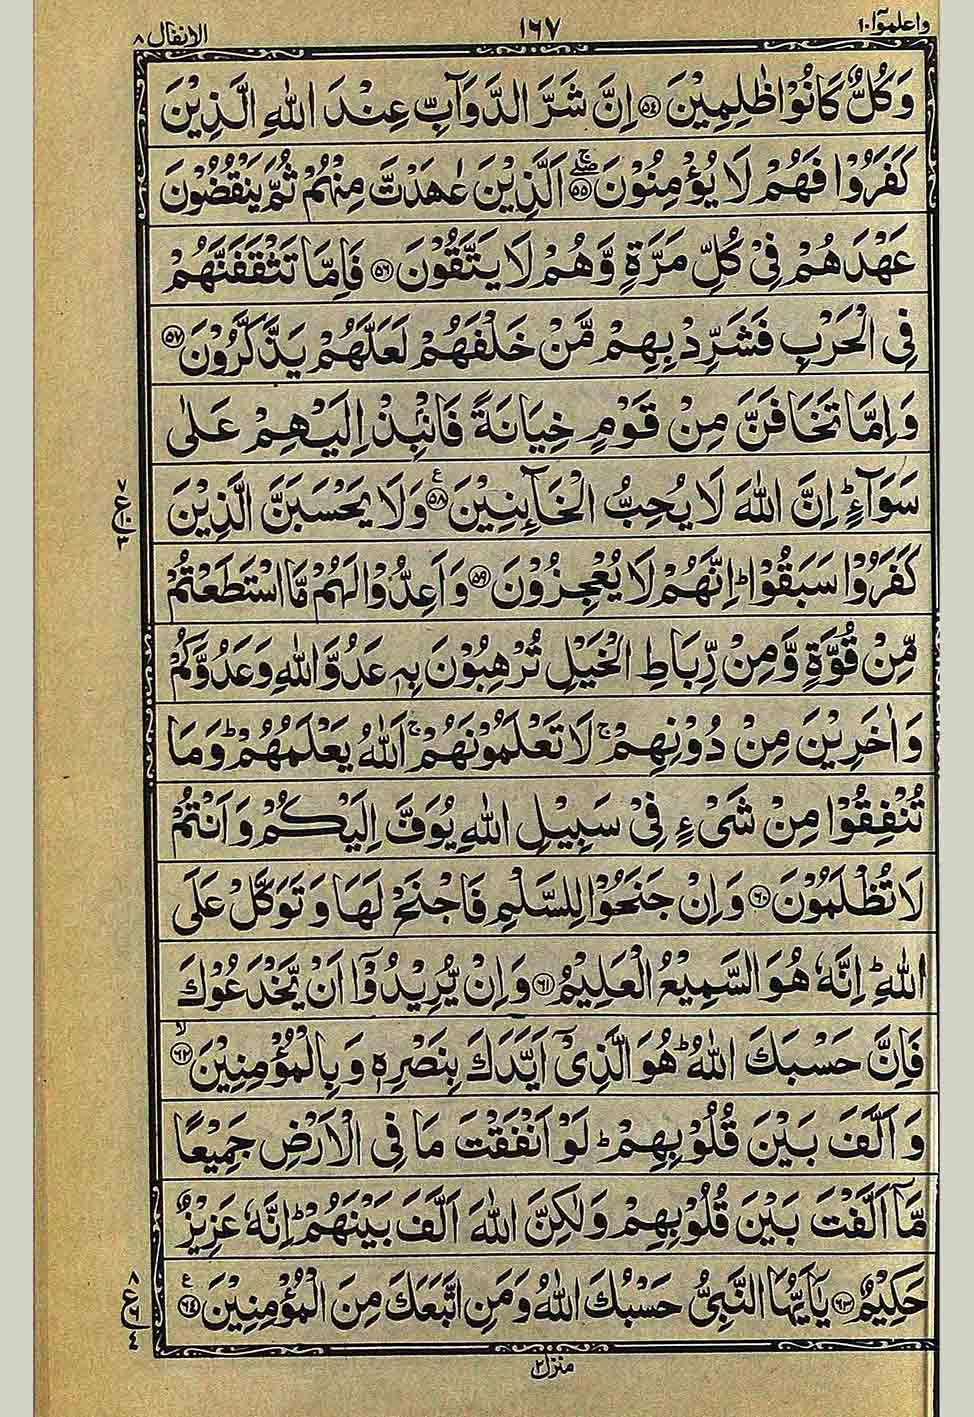 واعلموا ١٠ ١٦٧ الانفال ٨
وَكُلٌّ كَانُوْا ظٰلِمِيْنَ ﴿۵۴﴾ اِنَّ شَرَّ الدَّوَآبِّ عِنْدَ اللّٰهِ الَّذِيْنَ
كَفَرُوْا فَهُمْ لَا يُؤْمِنُوْنَ ﴿۵۵﴾ اَلَّذِيْنَ عٰهَدْتَّ مِنْهُمْ ثُمَّ يَنْقُضُوْنَ
عَهْدَهُمْ فِيْ كُلِّ مَرَّةٍ وَّهُمْ لَا يَتَّقُوْنَ ﴿۵۶﴾ فَاِمَّا تَثْقَفَنَّهُمْ
فِي الْحَرْبِ فَشَرِّدْ بِهِمْ مَّنْ خَلْفَهُمْ لَعَلَّهُمْ يَذَّكَّرُوْنَ ﴿۵۷﴾
وَاِمَّا تَخَافَنَّ مِنْ قَوْمٍ خِيَانَةً فَانْۢبِذْ اِلَيْهِمْ عَلٰى
سَوَآءٍ ؕ اِنَّ اللّٰهَ لَا يُحِبُّ الْخَآئِنِيْنَ ﴿۵۸﴾ ع وَلَا يَحْسَبَنَّ الَّذِيْنَ
٧ ع ١٠ ٣
كَفَرُوْا سَبَقُوْا ؕ اِنَّهُمْ لَا يُعْجِزُوْنَ ﴿۵۹﴾ وَاَعِدُّوْا لَهُمْ مَّا اسْتَطَعْتُمْ
مِّنْ قُوَّةٍ وَّمِنْ رِّبَاطِ الْخَيْلِ تُرْهِبُوْنَ بِهٖ عَدُوَّ اللّٰهِ وَعَدُوَّكُمْ
وَاٰخَرِيْنَ مِنْ دُوْنِهِمْ ۚ لَا تَعْلَمُوْنَهُمْ ۚ اَللّٰهُ يَعْلَمُهُمْ ؕ وَمَا
تُنْفِقُوْا مِنْ شَيْءٍ فِيْ سَبِيْلِ اللّٰهِ يُوَفَّ اِلَيْكُمْ وَاَنْتُمْ
لَا تُظْلَمُوْنَ ﴿۶۰﴾ وَاِنْ جَنَحُوْا لِلسَّلْمِ فَاجْنَحْ لَهَا وَتَوَكَّلْ عَلَى
اللّٰهِ ؕ اِنَّهٗ هُوَ السَّمِيْعُ الْعَلِيْمُ ﴿۶۱﴾ وَاِنْ يُّرِيْدُوْۤا اَنْ يَّخْدَعُوْكَ
فَاِنَّ حَسْبَكَ اللّٰهُ ؕ هُوَ الَّذِيْۤ اَيَّدَكَ بِنَصْرِهٖ وَبِالْمُؤْمِنِيْنَ ۙ ﴿۶۲﴾
وَاَلَّفَ بَيْنَ قُلُوْبِهِمْ ؕ لَوْ اَنْفَقْتَ مَا فِي الْاَرْضِ جَمِيْعًا
مَّاۤ اَلَّفْتَ بَيْنَ قُلُوْبِهِمْ وَلٰكِنَّ اللّٰهَ اَلَّفَ بَيْنَهُمْ ؕ اِنَّهٗ عَزِيْزٌ
حَكِيْمٌ ﴿۶۳﴾ يٰۤاَيُّهَا النَّبِيُّ حَسْبُكَ اللّٰهُ وَمَنِ اتَّبَعَكَ مِنَ الْمُؤْمِنِيْنَ ﴿۶۴﴾ ع
٨ ع ٦ ٤
منزل ٢